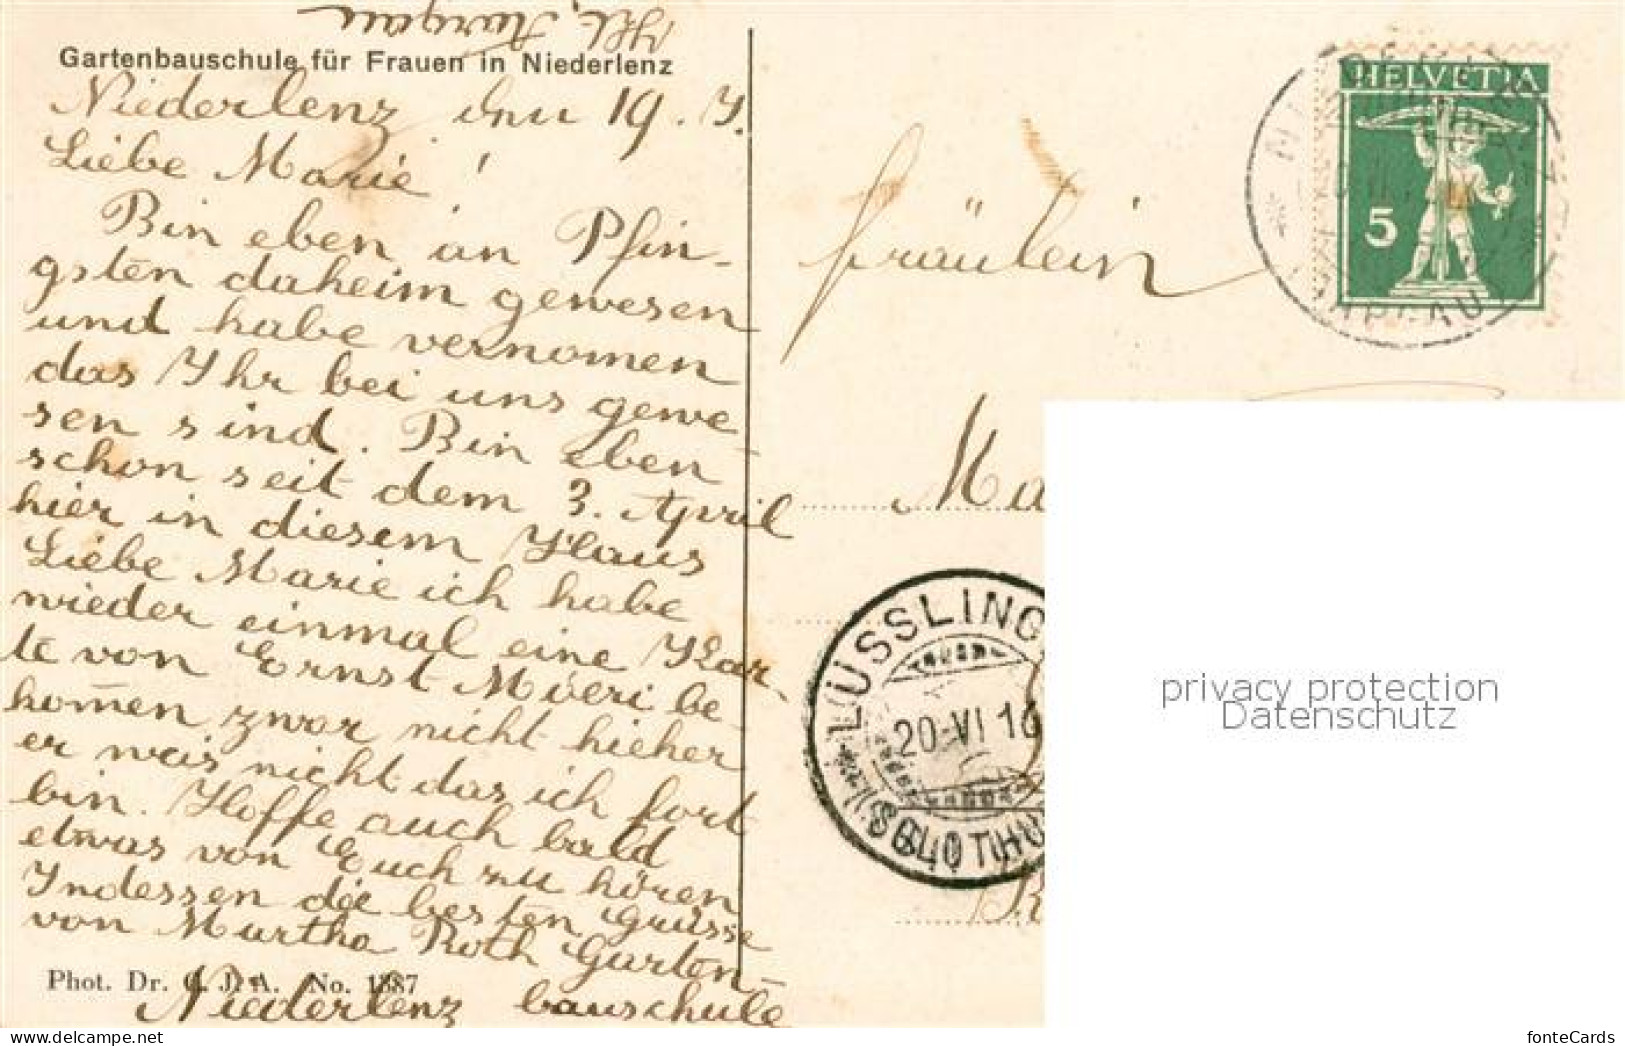 Kt. Aargau
Gartenbauschule für Frauen in Niederlenz
Niederlenz den 19. J.
Liebe Marie!
Bin eben an Pfin-
gsten daheim gewesen
und habe vernomen
das Ihr bei uns gewe-
sen sind. Bin eben
schon seit dem 3. April
hier in diesem Haus
Liebe Marie ich habe
wieder einmal eine Kar-
te von Ernst Moeri be-
komen zwar nicht hieher
er weis nicht das ich fort
bin. Hoffe auch bald
etwas von Euch zu hören
Indessen die besten Grüsse
von Martha Roth Garten-
Niederlenz bauschule
Phot. Dr. C. J. A. No. 1887
HELVETIA
5
AARGAU
Fräulein
Ma
LÜSSLING
20.VI 16
(SOLOTHU
privacy protection
Datenschutz
www.delcampe.net
fonteCards